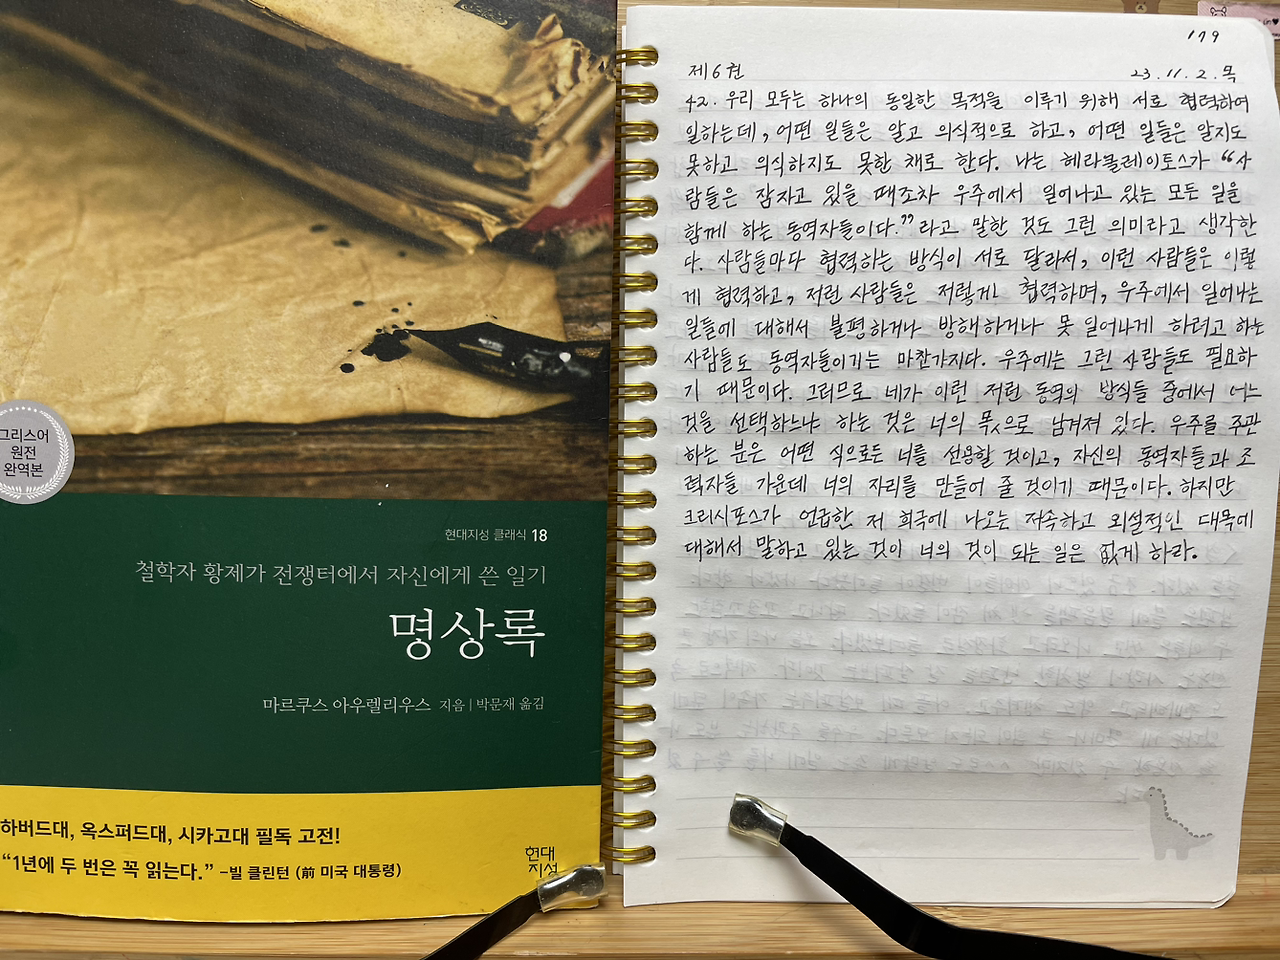 그리스어
원전
완역본
현대지성 클래식 18
철학자 황제가 전쟁터에서 자신에게 쓴 일기
명상록
마르쿠스 아우렐리우스 지음 | 박문재 옮김
하버드대, 옥스퍼드대, 시카고대 필독 고전!
“1년에 두 번은 꼭 읽는다.” –빌 클린턴 (前 미국 대통령)
현대
지성
179
제6권 23.11.2.목
42. 우리 모두는 하나의 동일한 목적을 이루기 위해 서로 협력하여
일하는데, 어떤 일들은 알고 의식적으로 하고, 어떤 일들은 알지도
못하고 의식하지도 못한 채로 한다. 나는 헤라클레이토스가 “사
람들은 잠자고 있을 때조차 우주에서 일어나고 있는 모든 일을
함께 하는 동역자들이다.”라고 말한 것도 그런 의미라고 생각한
다. 사람들마다 협력하는 방식이 서로 달라서, 이런 사람들은 이렇
게 협력하고, 저런 사람들은 저렇게 협력하며, 우주에서 일어나는
일들에 대해서 불평하거나 방해하거나 못 일어나게 하려고 하는
사람들도 동역자들이기는 마찬가지다. 우주에는 그런 사람들도 필요하
기 때문이다. 그러므로 네가 이런 저런 동역의 방식들 중에서 어느
것을 선택하느냐 하는 것은 너의 몫으로 남겨져 있다. 우주를 주관
하는 분은 어떤 식으로든 너를 선용할 것이고, 자신의 동역자들과 조
력자들 가운데 너의 자리를 만들어 줄 것이기 때문이다. 하지만
크리시포스가 언급한 저 희극에 나오는 저속하고 외설적인 대목에
대해서 말하고 있는 것이 너의 것이 되는 일은 없게 하라.